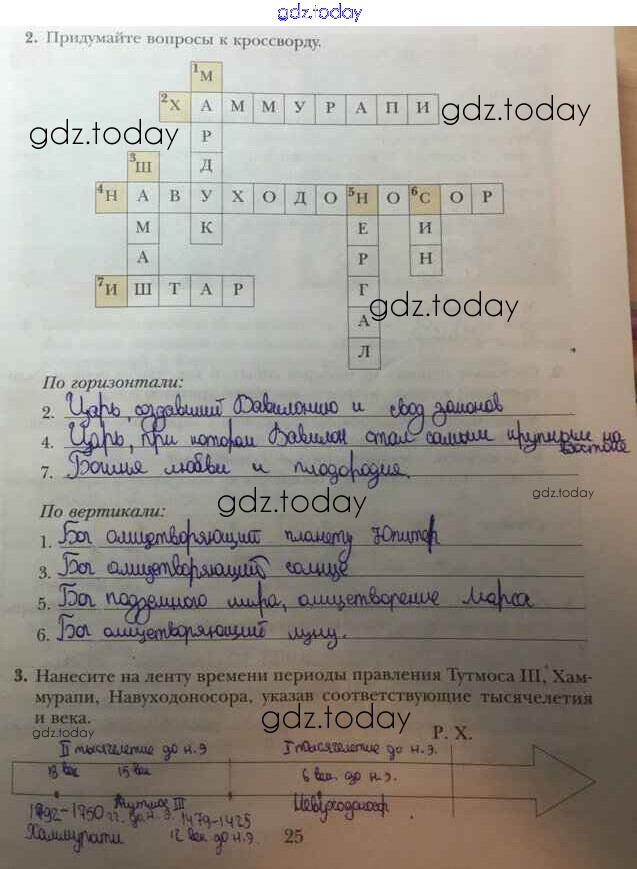 gdz.today
2. Придумайте вопросы к кроссворду.
1М
2ХАММУРАПИ
gdz.today
gdz.today
Р
3Ш Д
4НАВУХОДО5НО6СОР
М К Е И
А Р Н
7ИШТАР Г
gdz.today
А
Л
По горизонтали:
2. Царь, создавший Вавилонию и свод законов
4. Царь, при котором Вавилон стал самым крупным на
востоке
7. Богиня любви и плодородия.
gdz.today
gdz.today
По вертикали:
1. Бог олицетворяющий планету Юпитер
3. Бог олицетворяющий солнце
5. Бог подземного мира, олицетворение Марса
6. Бог олицетворяющий луну.
3. Нанесите на ленту времени периоды правления Тутмоса III, Хам-
мурапи, Навуходоносора, указав соответствующие тысячелетия
и века.
gdz.today
gdz.today
Р. Х.
II тысячелетие до н.э I тысячелетие до н.э.
18 век 15 век 6 век до н.э.
1792-1750 гг. до н.э. Тутмос III 1479-1425 Навуходоносор
Хаммурапи 12 век до н.э.
25